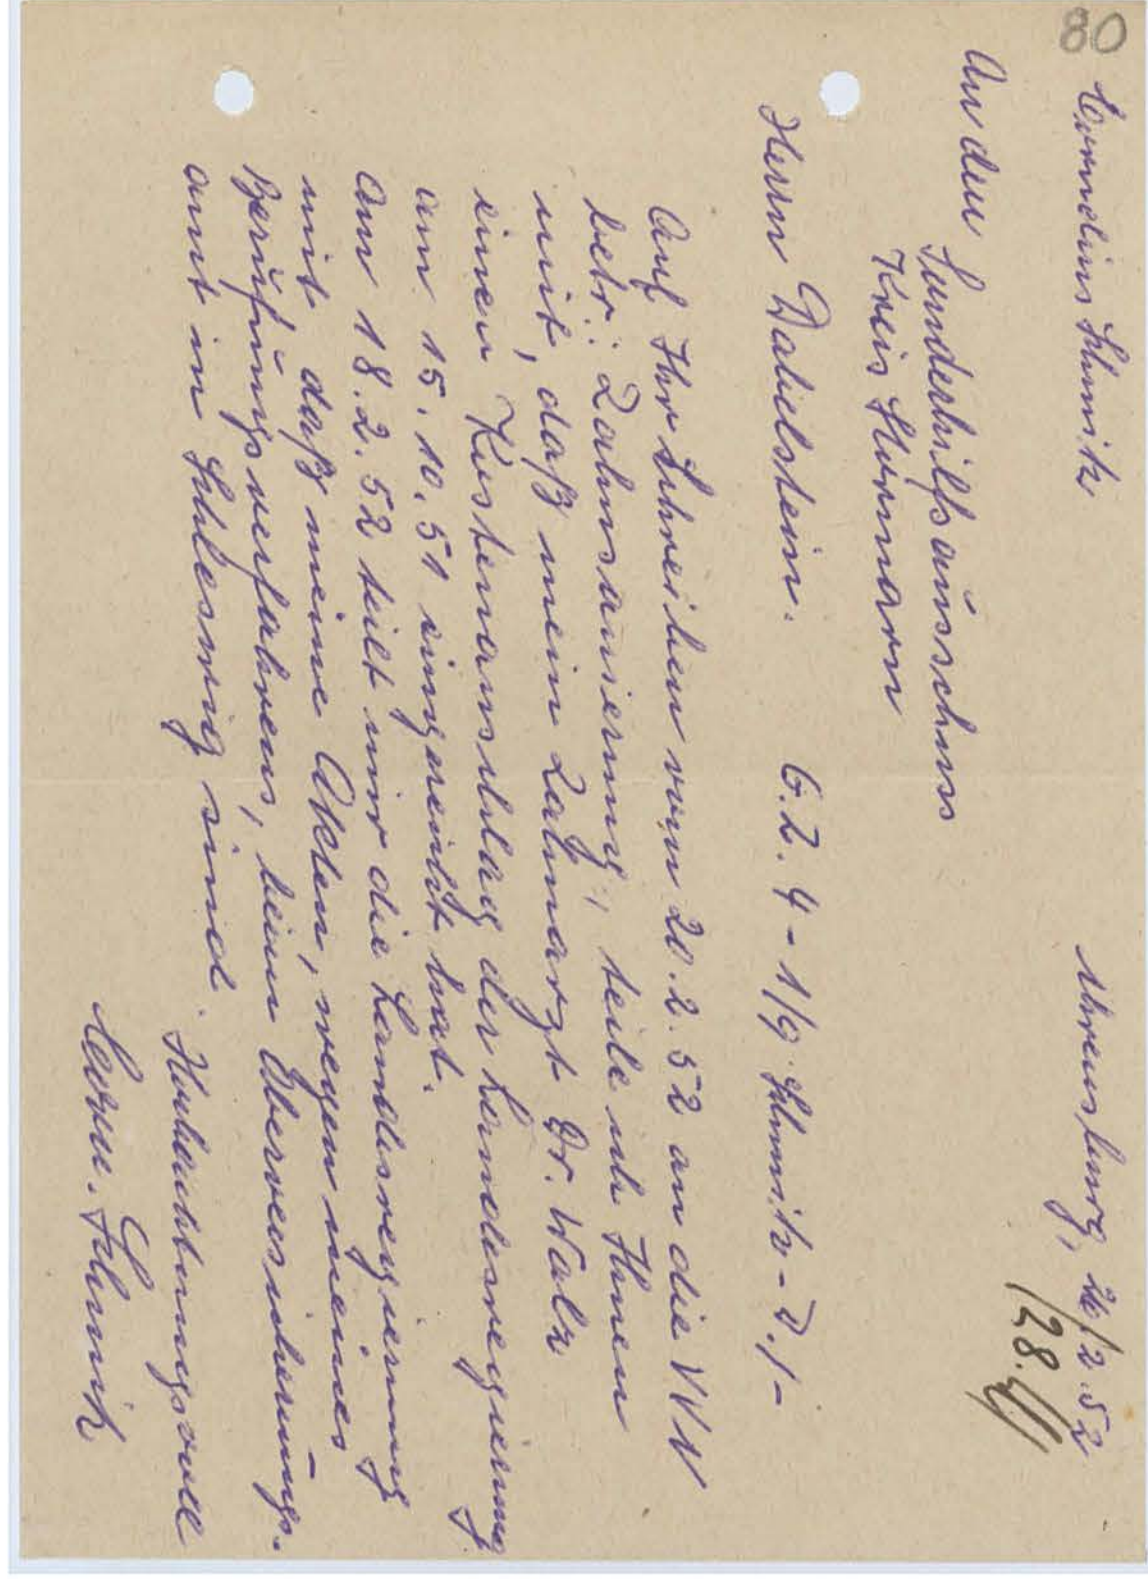 80
Cornelius Schmitz
Ahrensburg, 26/2.52
/28.
An den Sonderhilfsausschuss
Kreis Stormarn
Herrn Dabelstein. 6.2.4-1/9. Schmitz - D./-
Auf Ihr Schreiben vom 20.2.52 an die VVN
betr.: Zahnsanierung, teile ich Ihnen
mit, daß mein Zahnarzt Dr. Walz
einen Kostenanschlag der Landesregierung
am 15.10.51 eingereicht hat.
Am 18.2.52 teilt mir die Landesregierung
mit, daß meine Akten, wegen meines
Berufungsverfahrens, beim Oberversicherungs-
amt in Schleswig sind.
Hochachtungsvoll
Corn. Schmitz